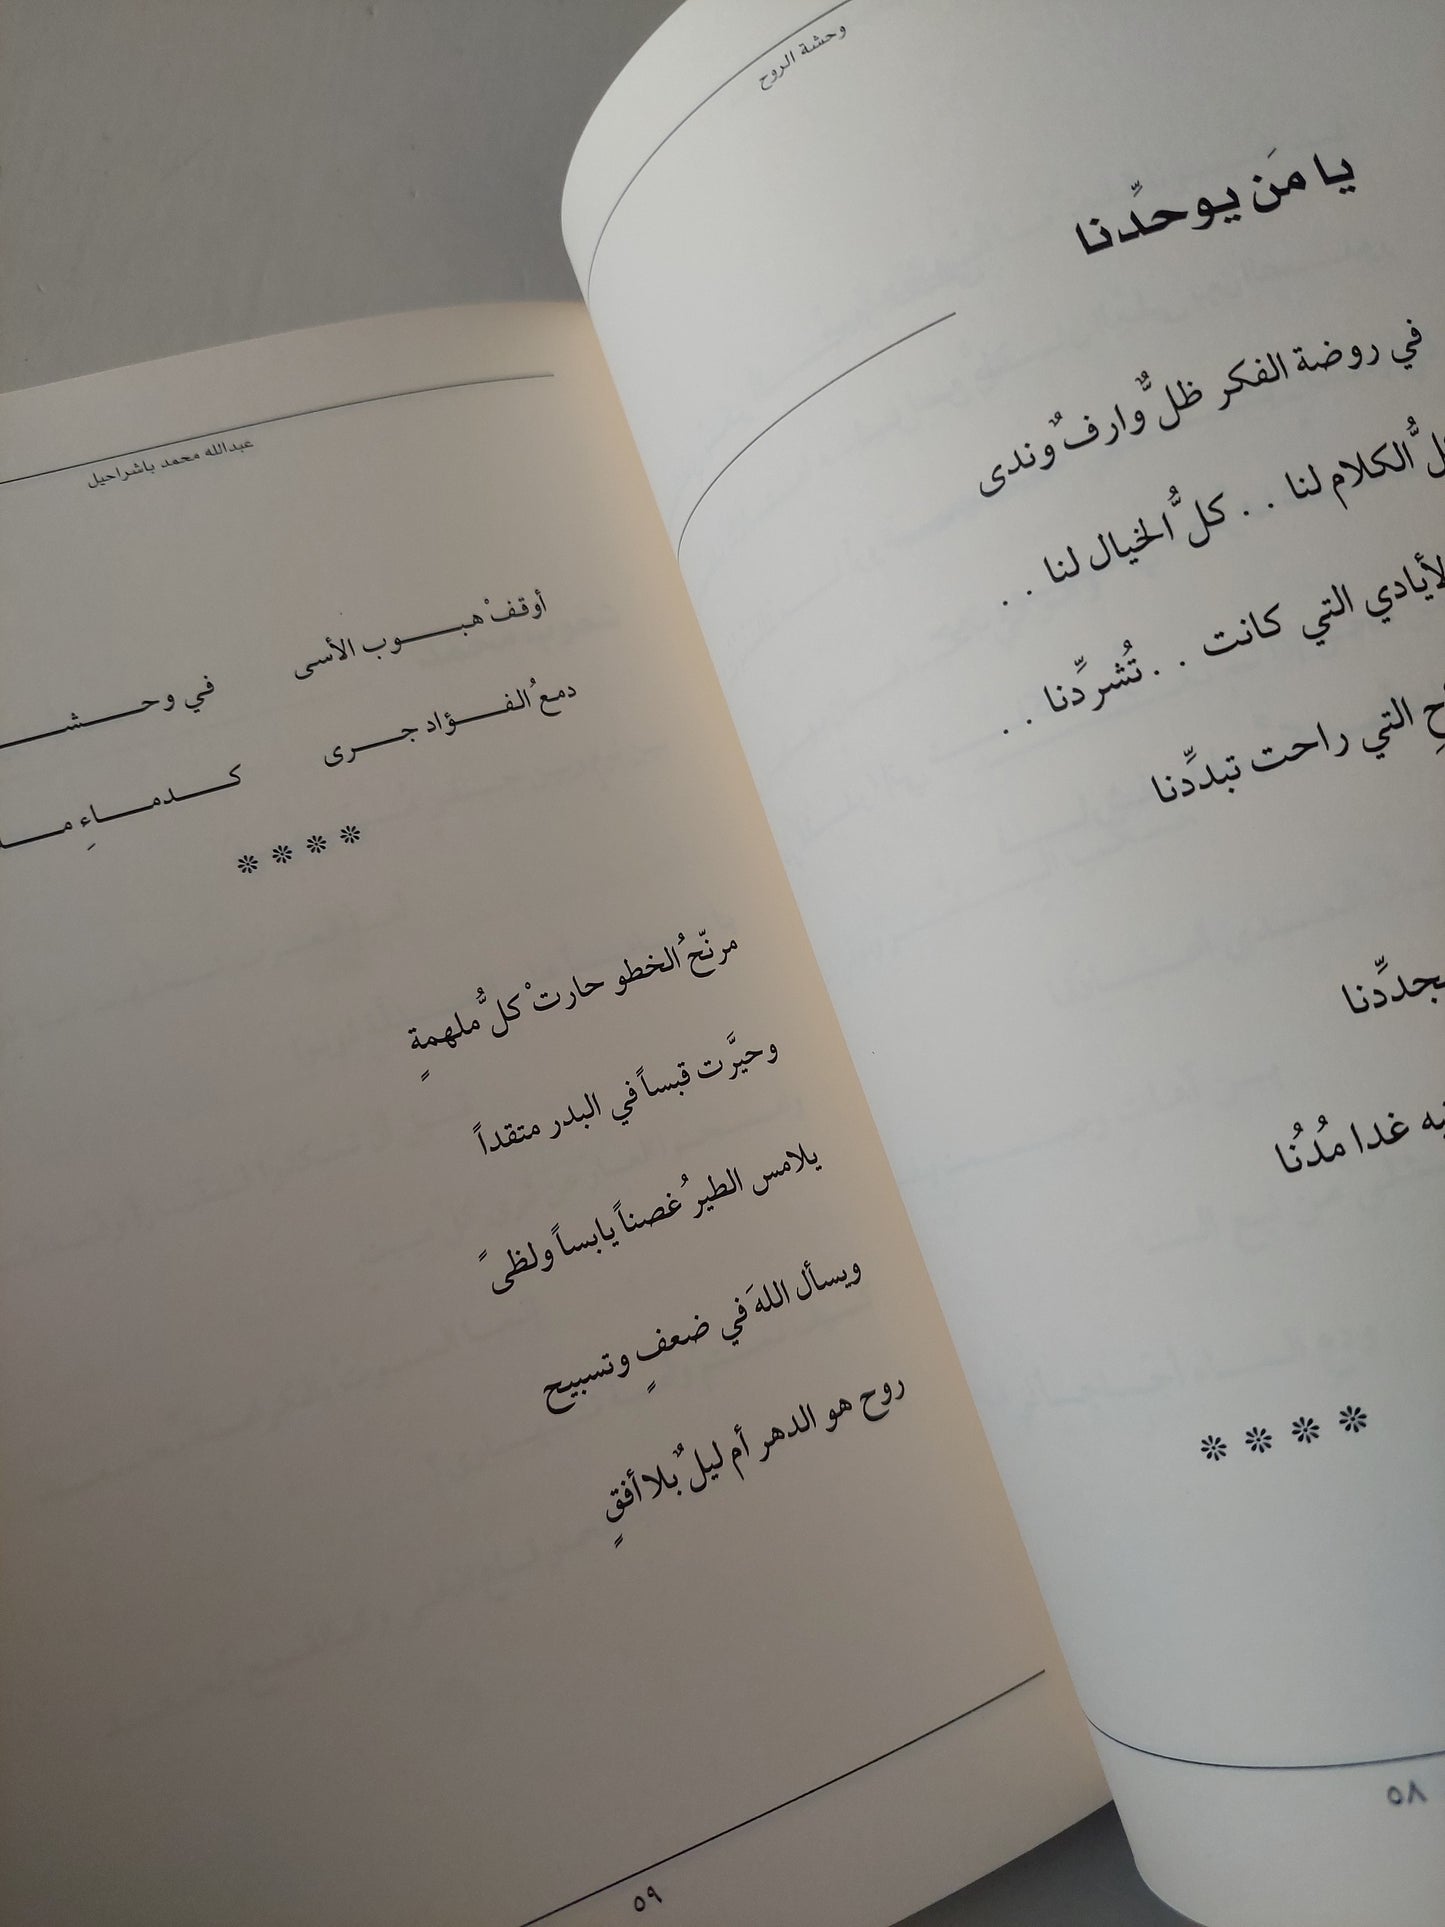 وحشة الروح
يا مَن يوحدِّنا
في روضة الفكر ظلٌّ وارفٌ وندى
الكلام لنا . . كلُّ الخيال لنا . .
الأيادي التي كانت . . تُشردِّنا . .
التي راحت تبددِّنا
غدا مُدُنُا
❊ ❊ ❊ ❊
٥٨
عبدالله محمد باشراحيل
أوقفْ هبـــوب الأسى في
دمعُ الفـــؤاد جـــرى كـــدمـــاءِ
❊ ❊ ❊ ❊
مرنّحُ الخطو حارتْ كلُّ ملهمةٍ
وحيرَّت قبساً في البدر متقداً
يلامس الطيرُ غصناً يابساً ولظىً
ويسأل اللهَ في ضعفٍ وتسبيح
روح هو الدهر أم ليلٌ بلا أفقٍ
٥٩